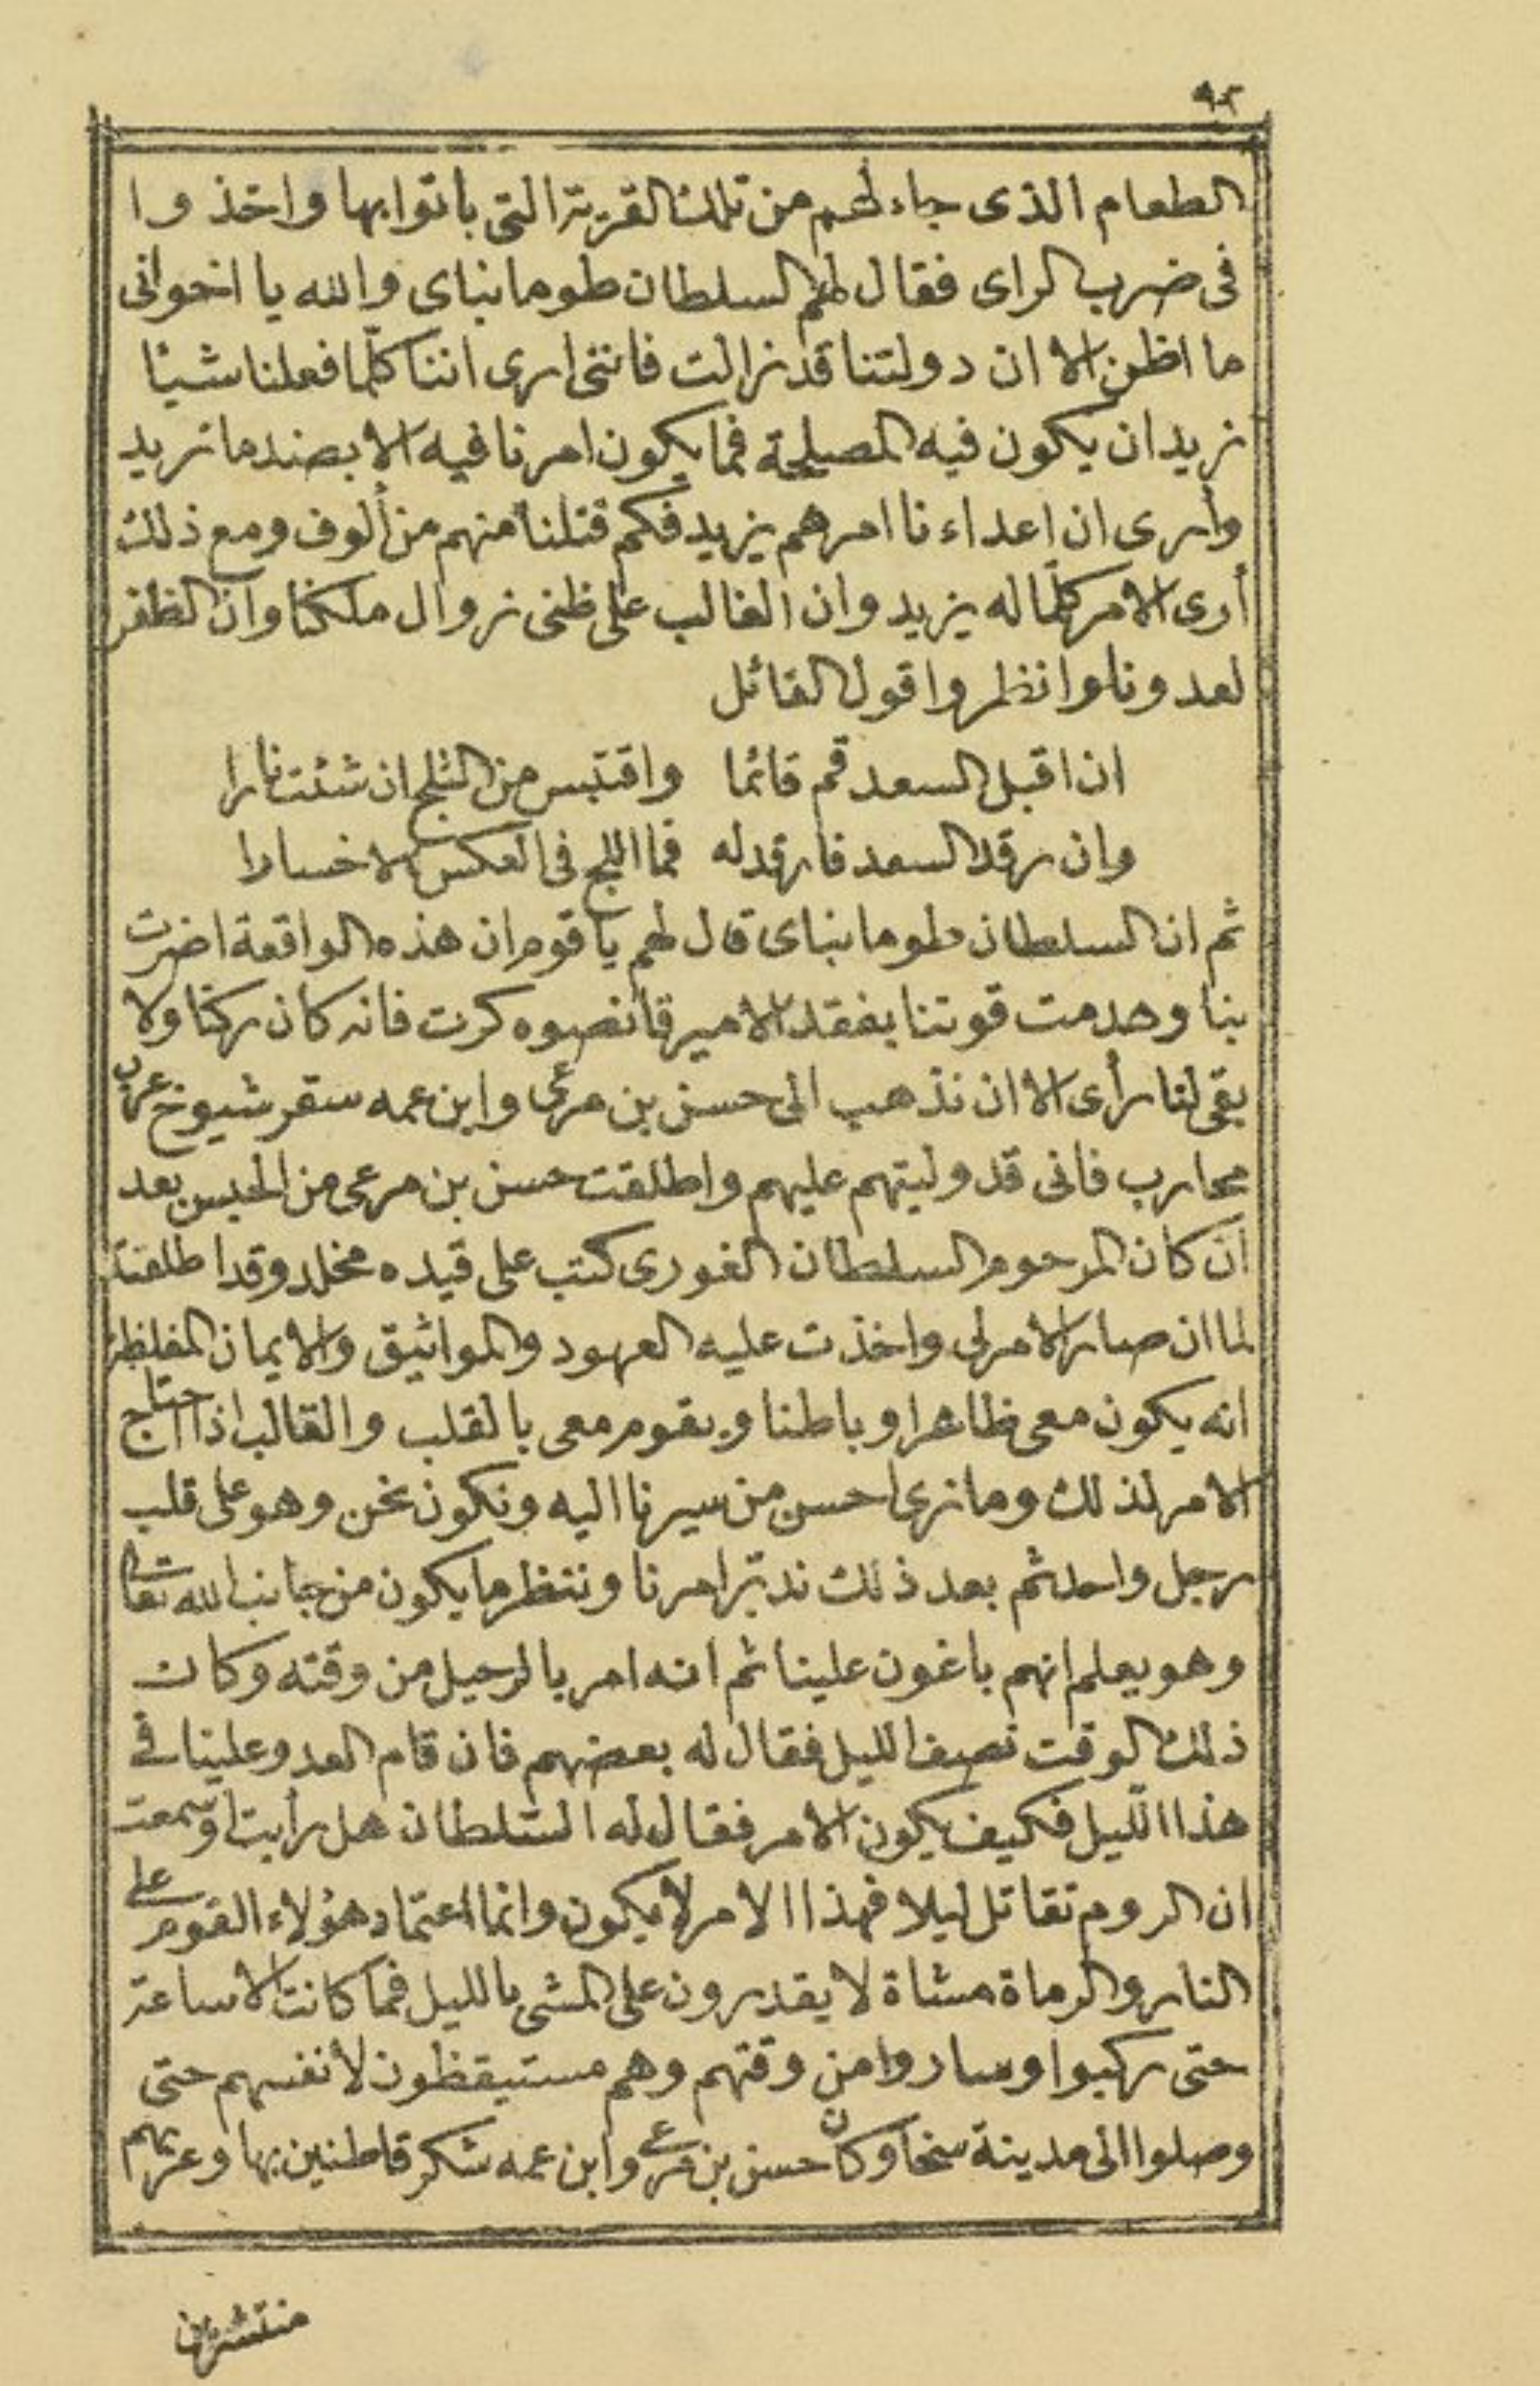 ٩٢
الطعام الذى جاء لهم من تلك القرية التى باتوا بها واخذوا
فى ضرب الراى فقال لهم السلطان طومانباى والله يا اخوانى
ما اظن الا ان دولتنا قد زالت فاننى ارى اننا كلّما فعلنا شيئا
نريد ان يكون فيه المصلحة فما يكون امرنا فيه الا بضد ما نريد
وأرى ان اعداءنا امرهم يزيد فكم قتلنا منهم من ألوف ومع ذلك
أرى الامر كلّما له يزيد وان الغالب على ظنى زوال ملكنا وان الظفر
لعدونا وانظروا قول القائل
ان اقبل السعد قم قائما واقتبس من الثلج ان شئت نارا
وان رقد السعد فارقد له فما اللج فى العكس الا خسارا
ثم ان السلطان طومانباى قال لهم يا قوم ان هذه الواقعة اضرت
بنا وهدمت قوتنا بفقد الامير قانصوه كرت فانه كان ركنا ولا
بقى لنا رأى الا ان نذهب الى حسن بن مرعى وابن عمه سقر شيوخ عربان
محارب فانى قد وليتهم عليهم واطلقت حسن بن مرعى من الحبس بعد
ان كان المرحوم السلطان الغورى كتب على قيده مخلد وقد اطلقته
لما ان صار الامر لى واخذت عليه العهود والمواثيق والايمان المغلظة
انه يكون معى ظاهرا وباطنا ويقوم معى بالقلب والقالب اذا احتاج
الامر لذلك وما نرى احسن من سيرنا اليه ونكون نحن وهو على قلب
رجل واحد ثم بعد ذلك ندبّر امرنا وننظر ما يكون من جانب الله تعالى
وهو يعلم انهم باغون علينا ثم انه امر بالرحيل من وقته وكان
ذلك الوقت نصف الليل فقال له بعضهم فان قام العدو علينا فى
هذا اللّيل فكيف يكون الامر فقال له السّلطان هل رأيت او سمعت
ان الروم تقاتل ليلا فهذا الامر لا يكون وانما اعتماد هؤلاء القوم على
النار والرماة مشاة لا يقدرون على المشى بالليل فما كانت الا ساعة
حتى ركبوا وساروا من وقتهم وهم مستيقظون لأنفسهم حتى
وصلوا الى مدينة سخا وكان حسن بن مرعى وابن عمه شكر قاطنين بها وعربهم
منتشرين